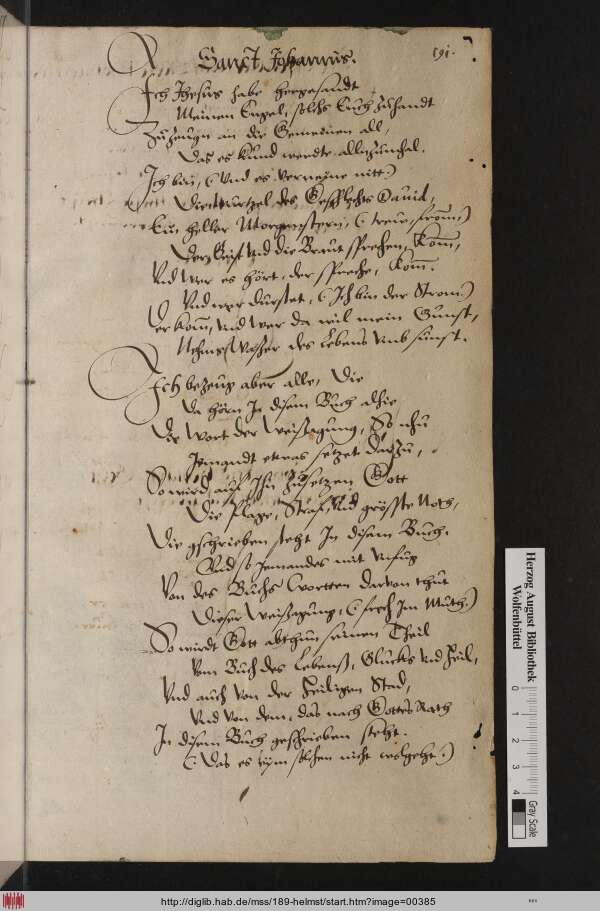 Sanct Johannis.
191.
Ich Jhesus habe hergesandt
Meinen Engel, solchs Euch zuhandt
Zuzeugn an die Gemeinen all,
Das es kund werdte allnzumahl.
Ich bin, (Und es verneyne nitt)
Die Wurtzel des Geschlechts Dauid,
Ein heller Morgenstern, (trew, from,)
Der Geyst Und die Braut sprechen, Kom,
Und Wer es hört, der spreche, Kom.
Und wer durstet, (Ich bin der Strom)
Der kom, und wer da wil mein Gunst,
Nehme Wasser des Lebens umb sunst.
Ich bezeug aber alle, Die
Da hörn In disem Buch alhie
Die Wort der Weissagung, So
Jemandt etwas setzet dazu,
So wird auf Jhn Zusetzen Gott
Die Plage, Straf, Und grösste Noth,
Die gschrieben steht In disem Buch.
Und so Jemandes mit unfug
Von des Buchs Wortten darvon thut
Dieser Weissagung, (frech Im Muth)
So wirdt Gott abthun seinen Theil
Vom Buch des Lebenss, Glucks Und Heil,
Und auch von der Heiligen Stad,
Und von dem, das nach Gottes Rath
In disem Buch geschrieben steht.
(Das es eym solchen nicht wolgeht.)
Herzog August Bibliothek
Wolfenbüttel
0 1 2 3 4
Gray Scale
http://diglib.hab.de/mss/189-helmst/start.htm?image=00385